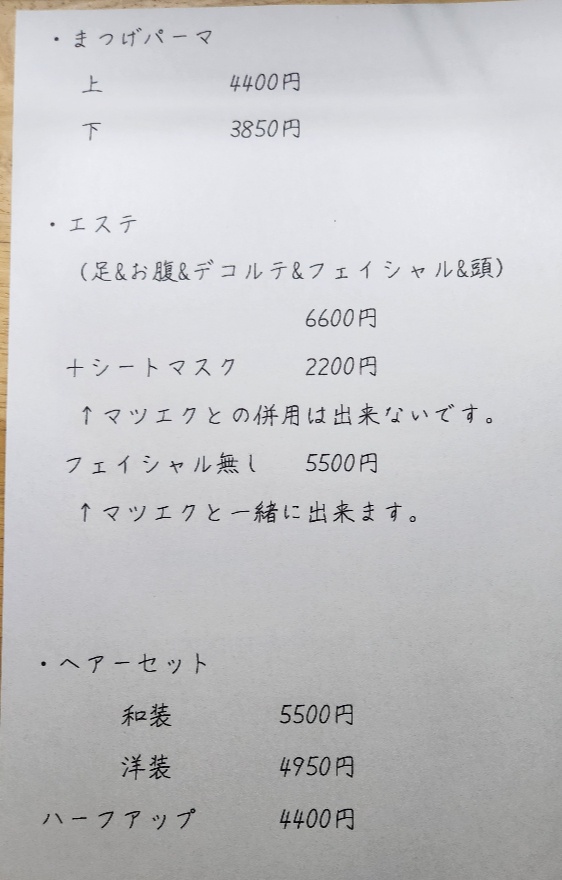 ・まつげパーマ
上 4400円
下 3850円
・エステ
(足&お腹&デコルテ&フェイシャル&頭)
6600円
+シートマスク 2200円
↑マツエクとの併用は出来ないです。
フェイシャル無し 5500円
↑マツエクと一緒に出来ます。
・ヘアーセット
和装 5500円
洋装 4950円
ハーフアップ 4400円